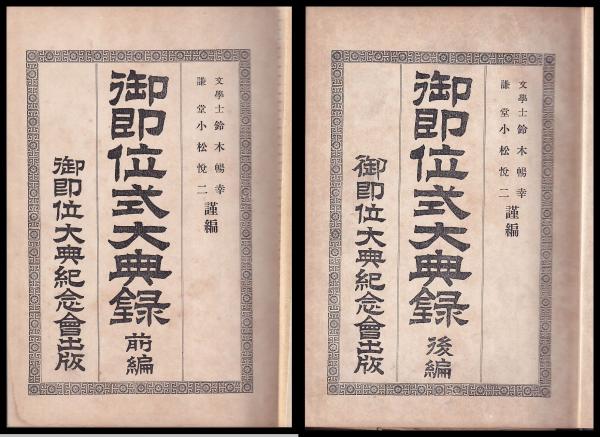 文學士鈴木暢幸
謙堂小松悅二
謹編
御即位式大典錄
前編
御即位大典紀念會出版
文學士鈴木暢幸
謙堂小松悅二
謹編
御即位式大典錄
後編
御即位大典紀念會出版